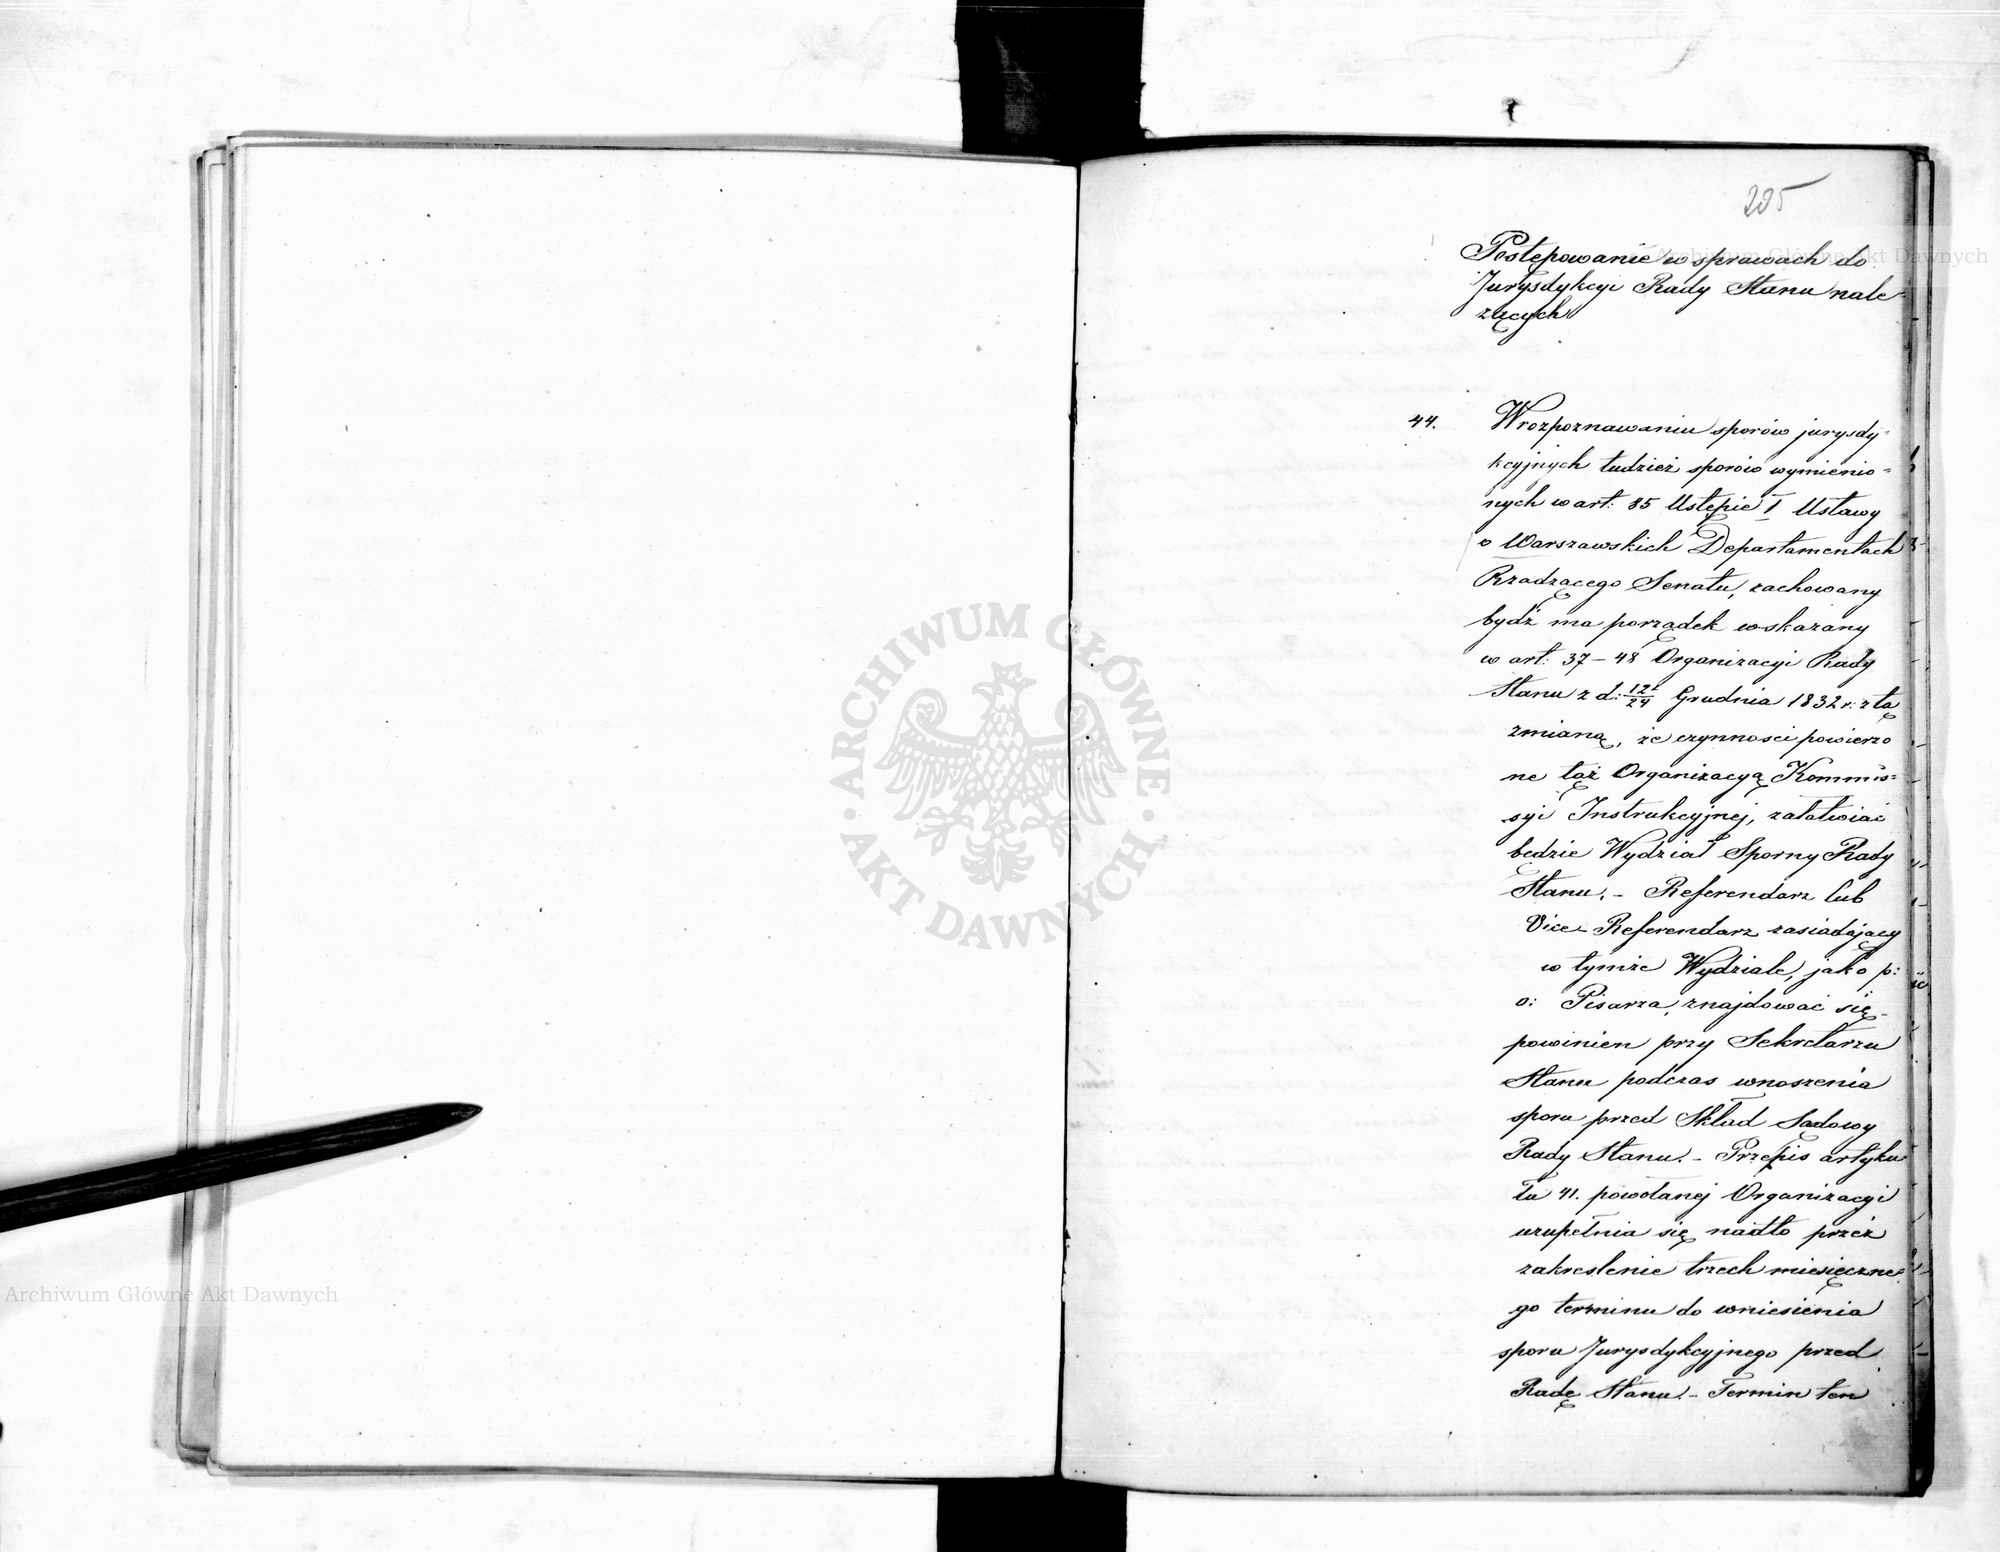 205
Postępowanie w sprawach do
Jurysdykcyi Rady Stanu nale-
żących
44. W rozpoznawaniu sporów jurysdy-
kcyjnych tudzież sporów wymienio-
nych w art: 85 Ustępie I Ustawy
o Warszawskich Departamentach
Rządzącego Senatu, zachowany
bydź ma porządek wskazany
w art: 37–48 Organizacyi Rady
Stanu z d: 12/24 Grudnia 1832 r: z tą
zmianą, że czynności powierzo
ne tąż Organizacyą Kommis-
syi Instrukcyjnej, załatwiać
będzie Wydział Sporny Rady
Stanu. – Referendarz lub
Vice-Referendarz zasiadający
w tymże Wydziale, jako p:
o: Pisarza, znajdować się
powinien przy Sekretarzu
Stanu podczas wnoszenia
sporu przed Skład Sądowy
Rady Stanu. – Przepis artyku
łu 41. powołanej Organizacyi
uzupełnia się nadto przez
zakreślenie trzech miesięczne-
go terminu do wniesienia
sporu Jurysdykcyjnego przed
Radę Stanu. – Termin ten
ARCHIWUM GŁÓWNE
AKT DAWNYCH
Archiwum Główne Akt Dawnych
Archiwum Główne Akt Dawnych